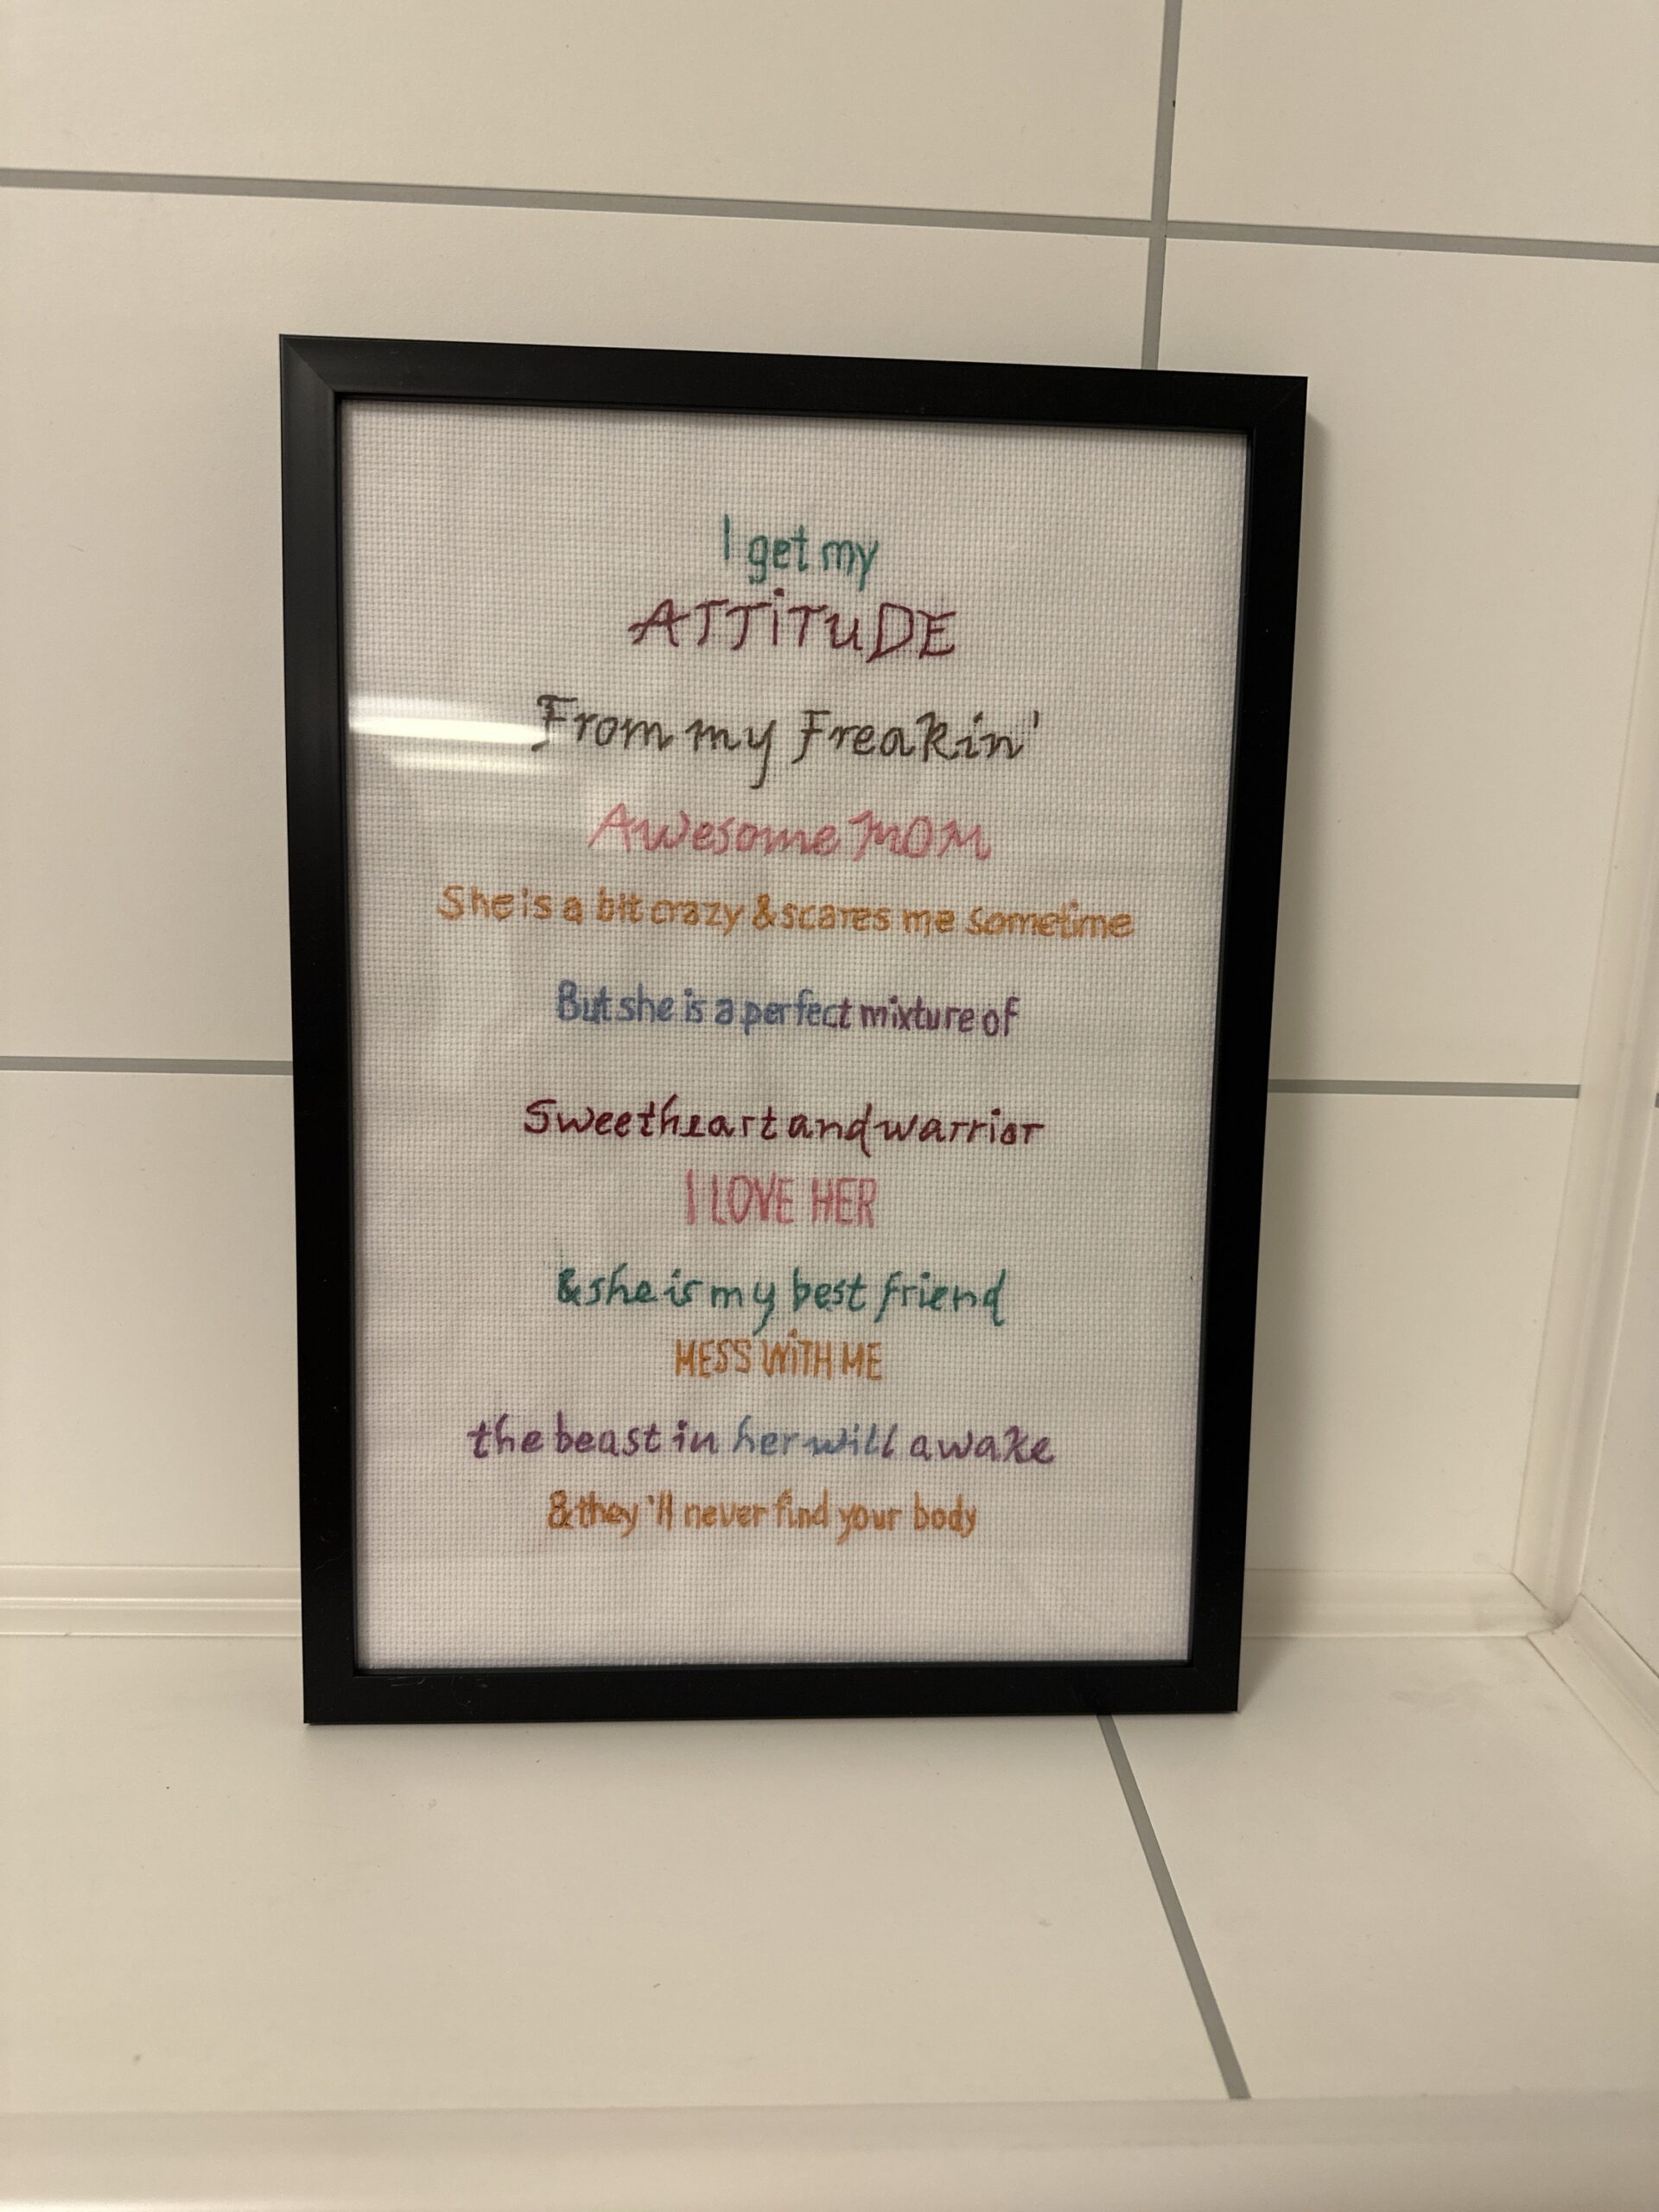 I get my
ATTiTuDE
From my Freakin'
Awesome MOM
She is a bit crazy & scares me sometime
But she is a perfect mixture of
Sweetheart and warrior
I LOVE HER
& she is my best friend
MESS WiTH ME
the beast in her will awake
& they 'll never find your body